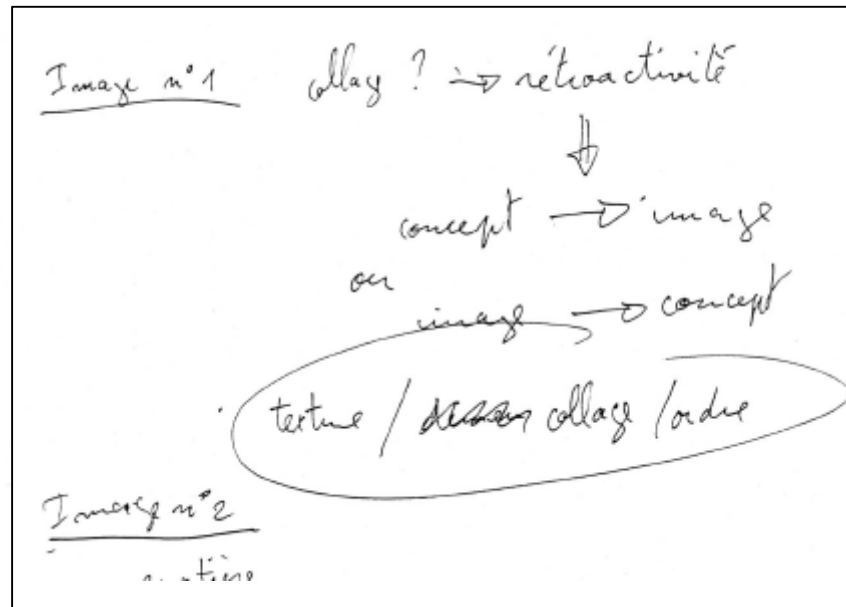 Image n°1 collage ? → rétroactivité
⇓
concept → image
ou
image → concept
texture / collage / ordre
Image n°2